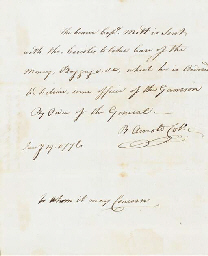 The bearer Capt. Mott is Sent
with the Carioles to take Care of the
Money, Baggage &c, which he is
to deliver some officer of the Garrison
By Order of the General. —
B Arnold Col.
Jany 19. 1776
To whom it may Concern